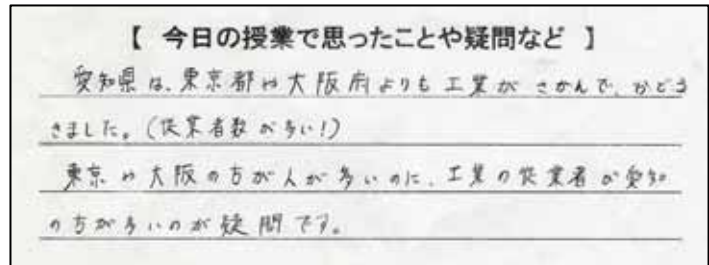 【 今日の授業で思ったことや疑問など 】
愛知県は、東京都や大阪府よりも工業がさかんで、おどろ
きました。(従業者数が多い!)
東京や大阪の方が人が多いのに、工業の従業者が愛知
の方が多いのが疑問です。